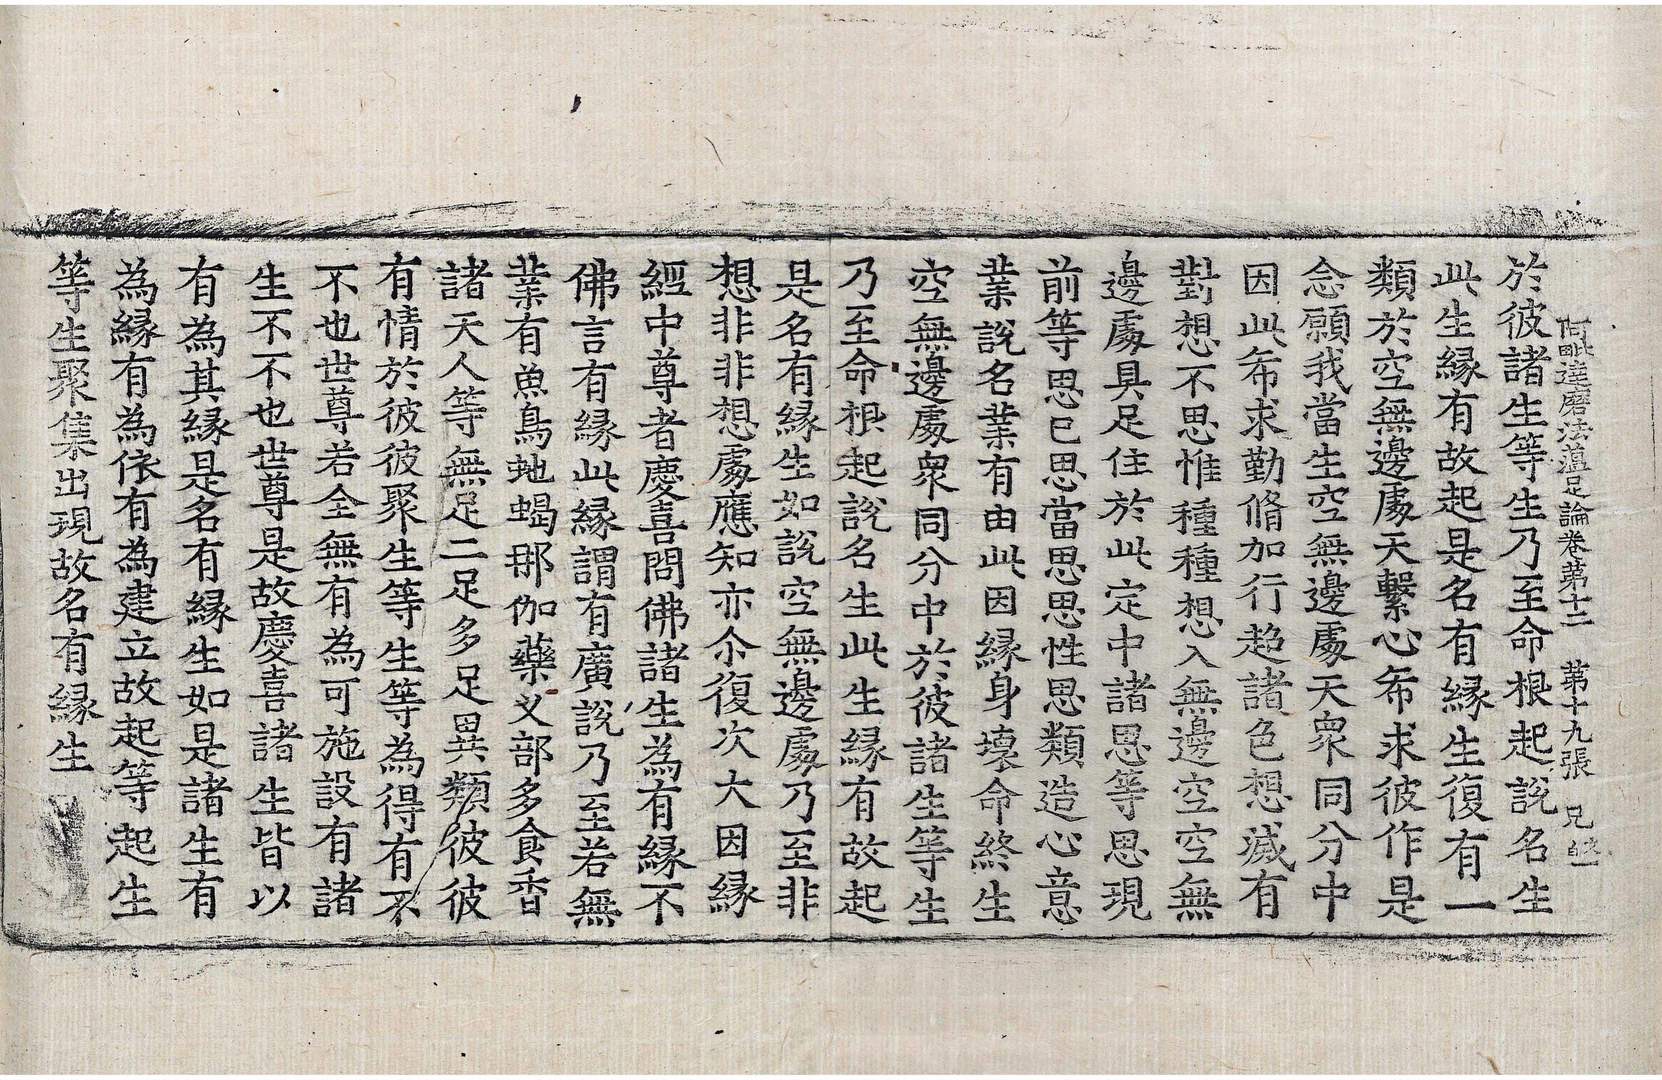 阿毗達磨法蕴足論卷第十二　第十九張　兄
於彼諸生等生乃至命根起說名生
此生緣有故起是名有緣生復有一
類於空無邊處天繫心希求彼作是
念願我當生空無邊處天衆同分中
因此希求勤脩加行趍諸色想滅有
對想不思惟種種想入無邊空空無
邊處具足住於此定中諸思等思現
前等思已思當思思性思類造心意
業說名業有由此因緣身壞命終生
空無邊處衆同分中於彼諸生等生
乃至命根起說名生此生緣有故起
是名有緣生如說空無邊處乃至非
想非非想處應知亦尒復次大因緣
經中尊者慶喜問佛諸生為有緣不
佛言有緣此緣謂有廣說乃至若無
業有魚鳥虵蝎那伽藥叉部多食香
諸天人等無足二足多足異類彼彼
有情於彼彼聚生等生等為得有不
不也世尊若全無有為可施設有諸
生不不也世尊是故慶喜諸生皆以
有為其緣是名有緣生如是諸生有
為緣有為依有為建立故起等起生
等生聚集出現故名有緣生